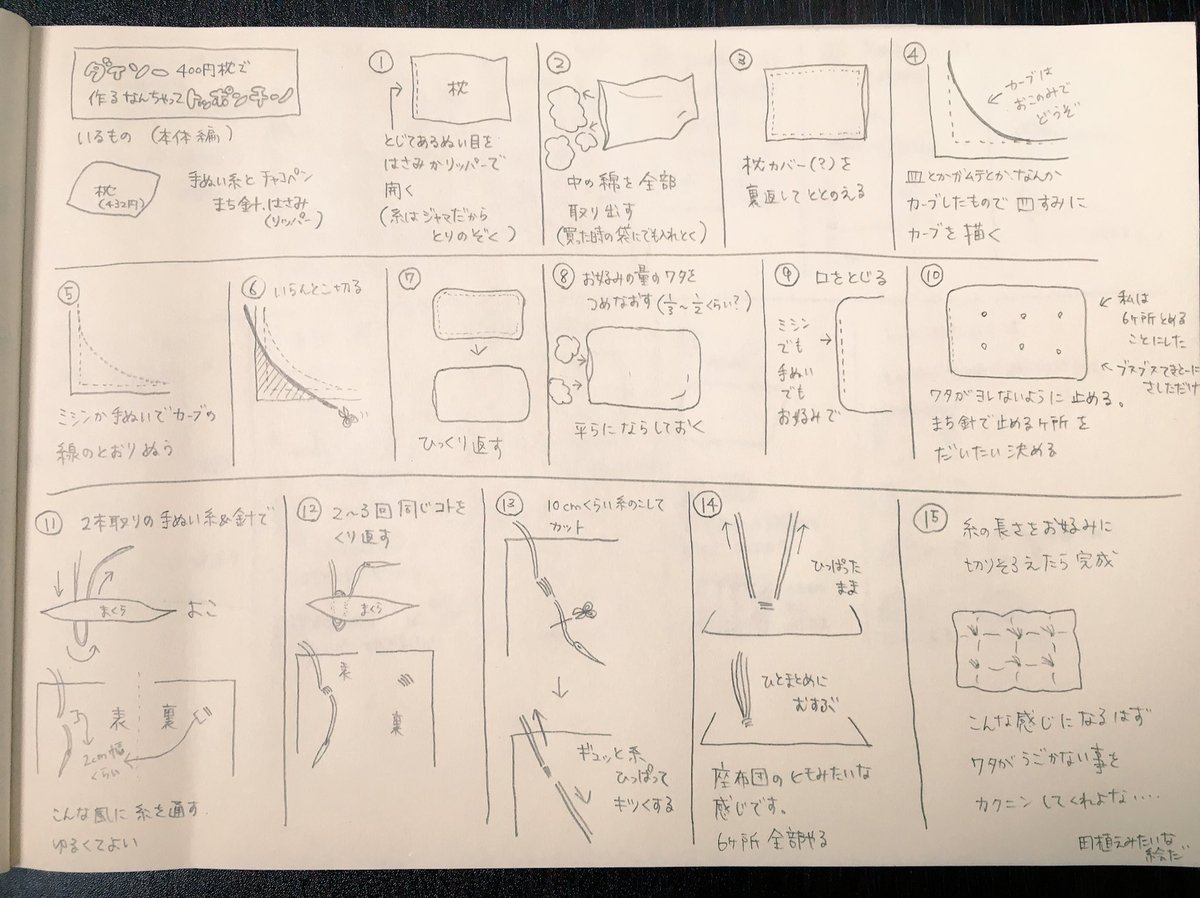 ダイソー 400円枕で
作るなんちゃってトッポンチーノ
いるもの (本体編)
枕
(432円)
手ぬい糸とチャコペン
まち針、はさみ
(リッパー)
①
枕
とじてあるぬい目を
はさみかリッパーで
開く
(糸はジャマだから
とりのぞく)
②
中の綿を全部
取り出す
(買った時の袋にでも入れとく)
③
枕カバー(?)を
裏返してととのえる
④
カーブは
おこのみで
どうぞ
皿とかガムテとか、なんか
カーブしたもので四すみに
カーブを描く
⑤
ミシンか手ぬいでカーブの
線のとおりぬう
⑥ いらんとこ切る
⑦
ひっくり返す
⑧ お好みの量のワタを
つめなおす (1/3〜1/2くらい?)
平らにならしておく
⑨ 口をとじる
ミシン
でも
手ぬい
でも
お好みで
⑩
私は
6ヶ所とめる
ことにした
ブスブスてきとーに
さしただけ
ワタがヨレないように止める。
まち針で止めるヶ所を
だいたい決める
⑪ 2本取りの手ぬい糸&針で
まくら
よこ
表
裏
2cm幅
くらい
こんな風に糸を通す
ゆるくてよい
⑫ 2〜3回同じコトを
くり返す
まくら
表
裏
⑬ 10cmくらい糸のこして
カット
ギュッと糸
ひっぱって
キツくする
⑭
ひっぱった
まま
ひとまとめに
むすぶ
座布団のヒモみたいな
感じです。
6ヶ所全部やる
⑮ 糸の長さをお好みに
切りそろえたら完成
こんな感じになるはず
ワタがうごかない事を
カクニンしてくれよな‥‥
田植えみたいな
絵だ